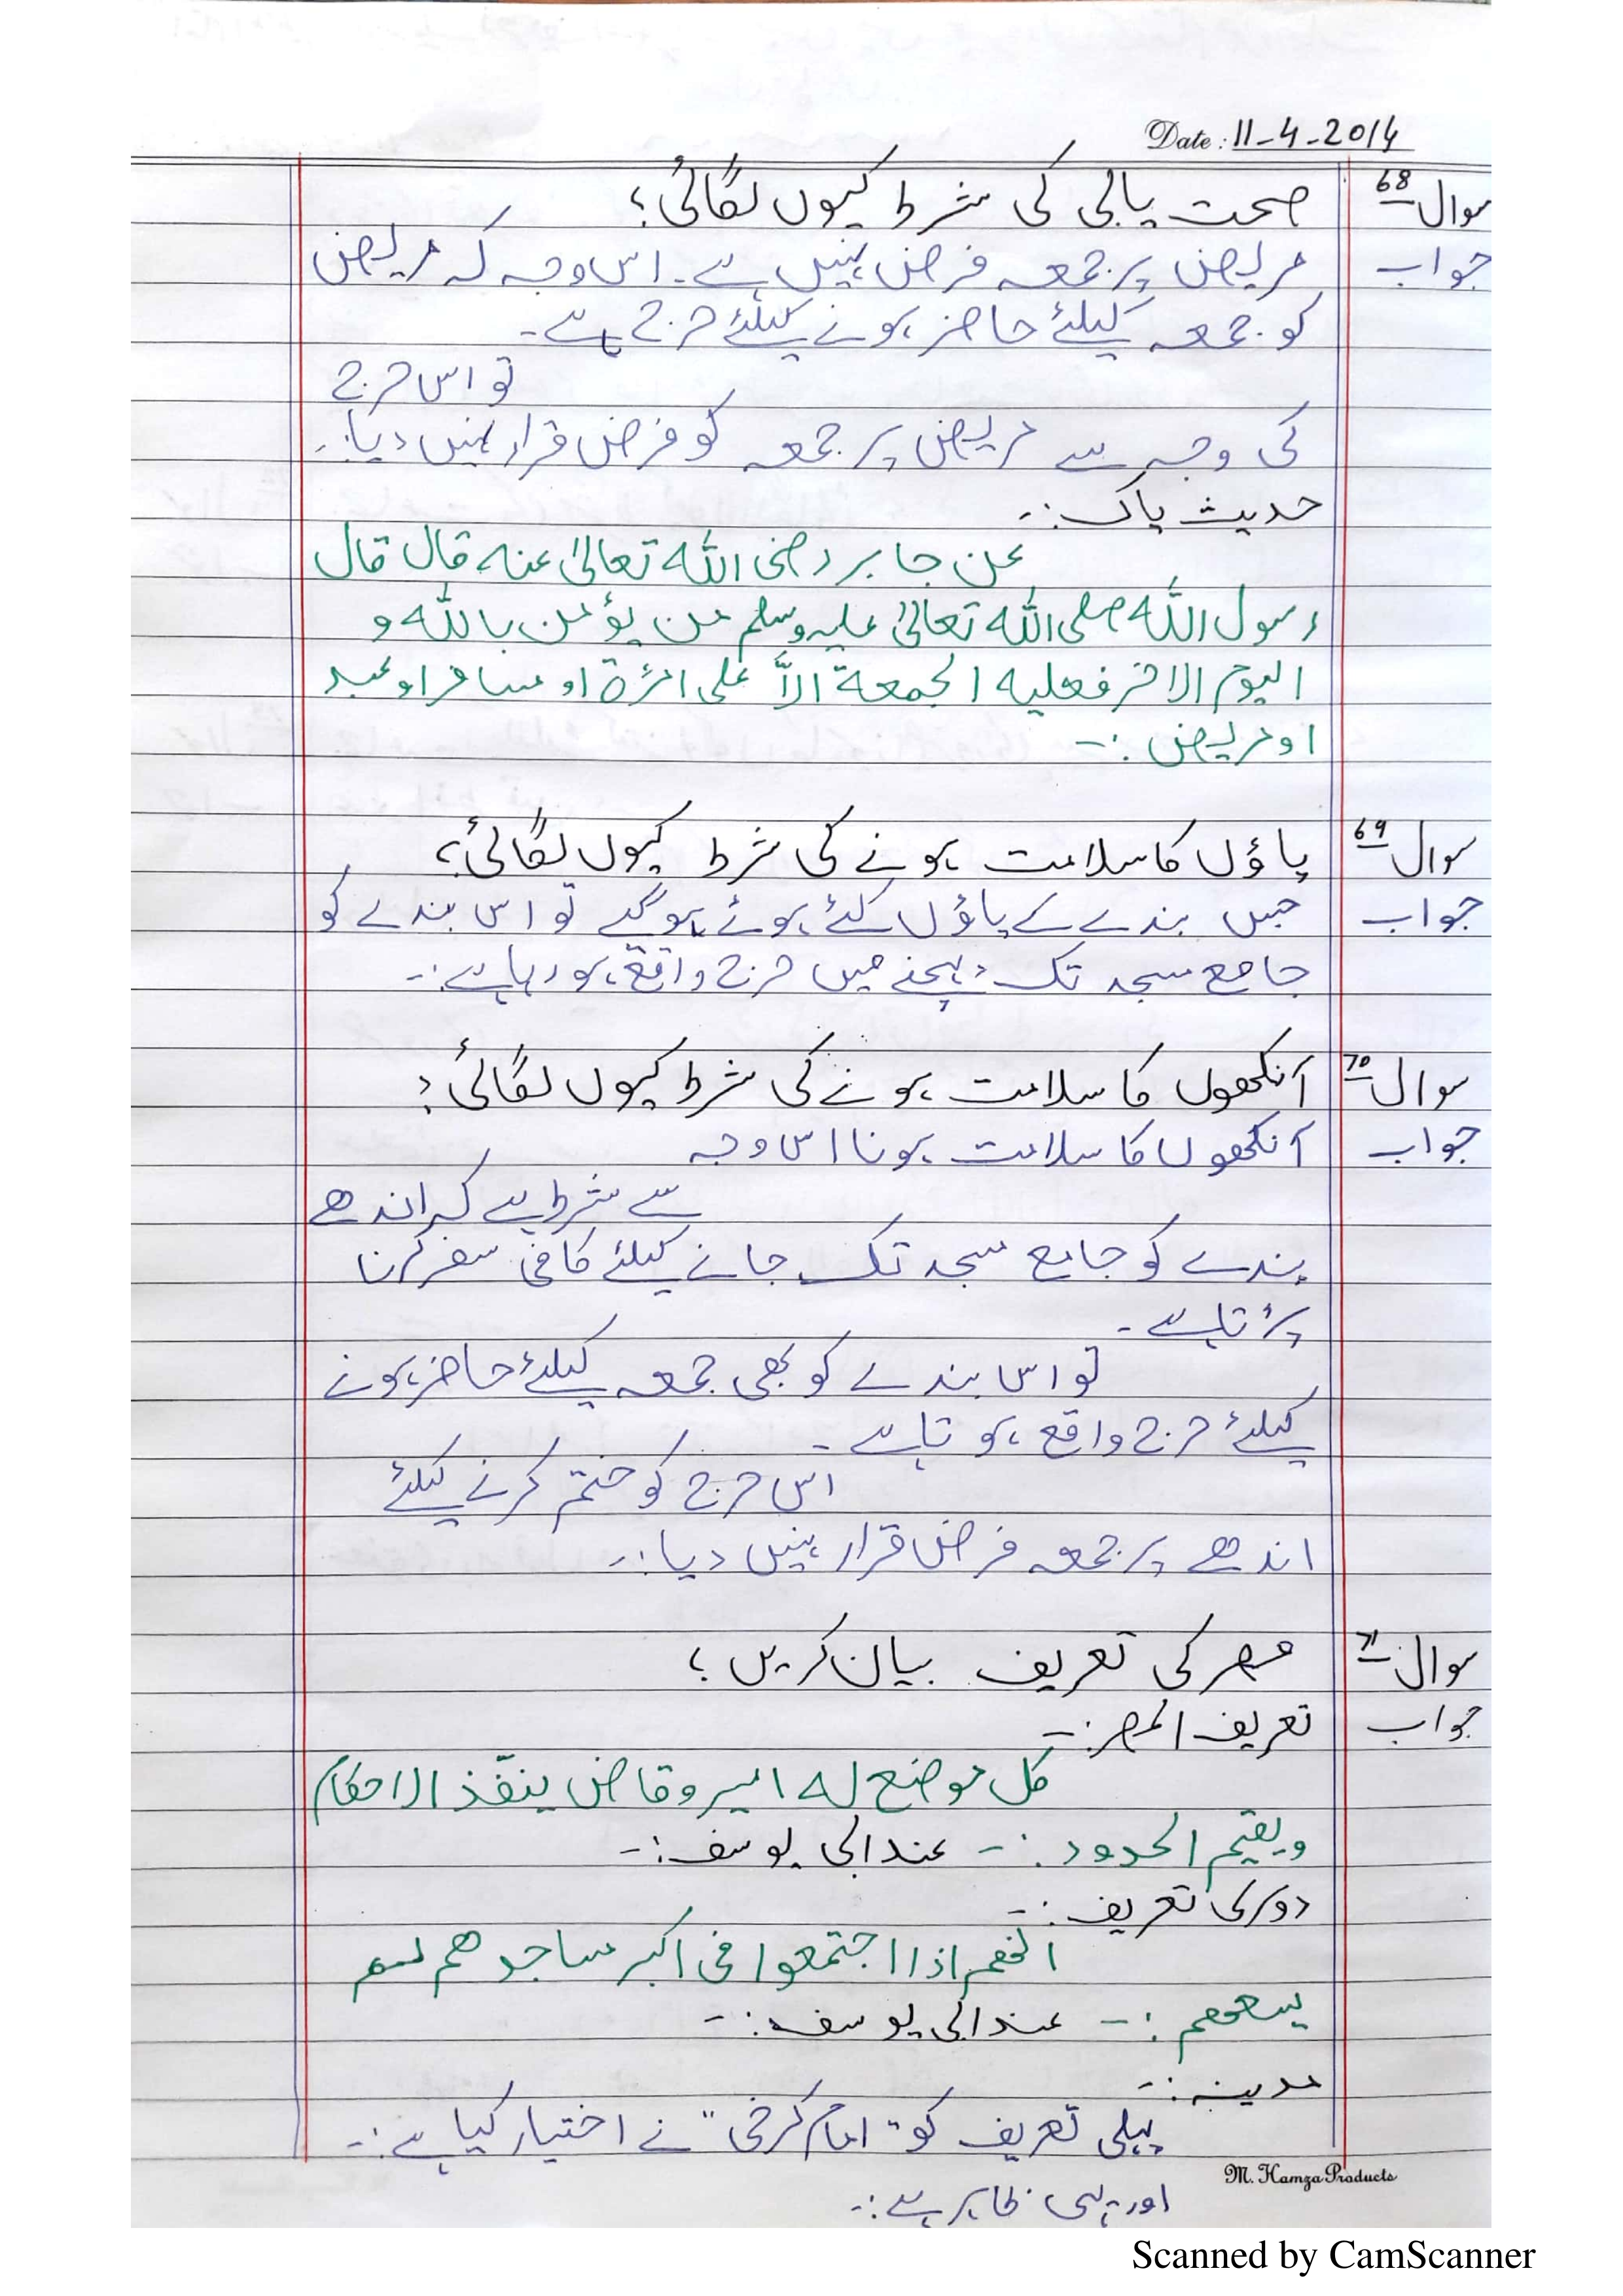 Date: 11-4-2014
سوال 68 صحت یابی کی شرط کیوں لگائی؟
جواب مریض پر جمعہ فرض نہیں ہے۔ اس وجہ کہ مریض
کو جمعہ کیلئے حاضر ہونے کیلئے حرج ہے۔
تو اس حرج
کی وجہ سے مریض پر جمعہ کو فرض قرار نہیں دیا:۔
حدیث پاک:۔
عن جابر رضی اللہ تعالیٰ عنہ قال قال
رسول اللہ صلی اللہ تعالیٰ علیہ وسلم من یؤمن باللہ و
الیوم الاخر فعلیہ الجمعۃ الاَّ علی امرٔۃ او مسافر او عبد
او مریض :۔
سوال 69 پاؤں کا سلامت ہونے کی شرط کیوں لگائی؟
جواب جس بندے کے پاؤں کٹے ہوئے ہوگے تو اس بندے کو
جامع مسجد تک پہنچنے میں حرج واقع ہو رہا ہے:۔
سوال 70 آنکھوں کا سلامت ہونے کی شرط کیوں لگائی؟
جواب آنکھوں کا سلامت ہونا اس وجہ
سے شرط ہے کہ اندھے
بندے کو جامع مسجد تک جانے کیلئے کافی سفر کرنا
پڑتا ہے۔
تو اس بندے کو بھی جمعہ کیلئے حاضر ہونے
کیلئے حرج واقع ہوتا ہے۔
اس حرج کو ختم کرنے کیلئے
اندھے پر جمعہ فرض قرار نہیں دیا:۔
سوال 71 مصر کی تعریف بیان کریں؟
جواب تعریف المصر:۔
کل موضع لہ امیر وقاض ینفّذ الاحکام
ویقیم الحدود:۔ عند ابی یوسف:۔
دوسری تعریف:۔
انھم اذا اجتمعوا فی اکبر مساجدھم لم
یسعھم :۔ عند ابی یوسف:۔
مدینہ:۔
پہلی تعریف کو "امام کرخی" نے اختیار کیا ہے:۔
اور یہی ظاہر ہے:۔
M. Hamza Products
Scanned by CamScanner